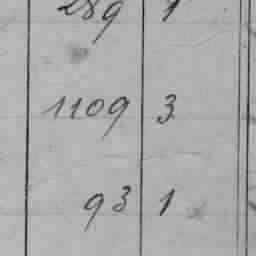 289 1
1109 3
93 1